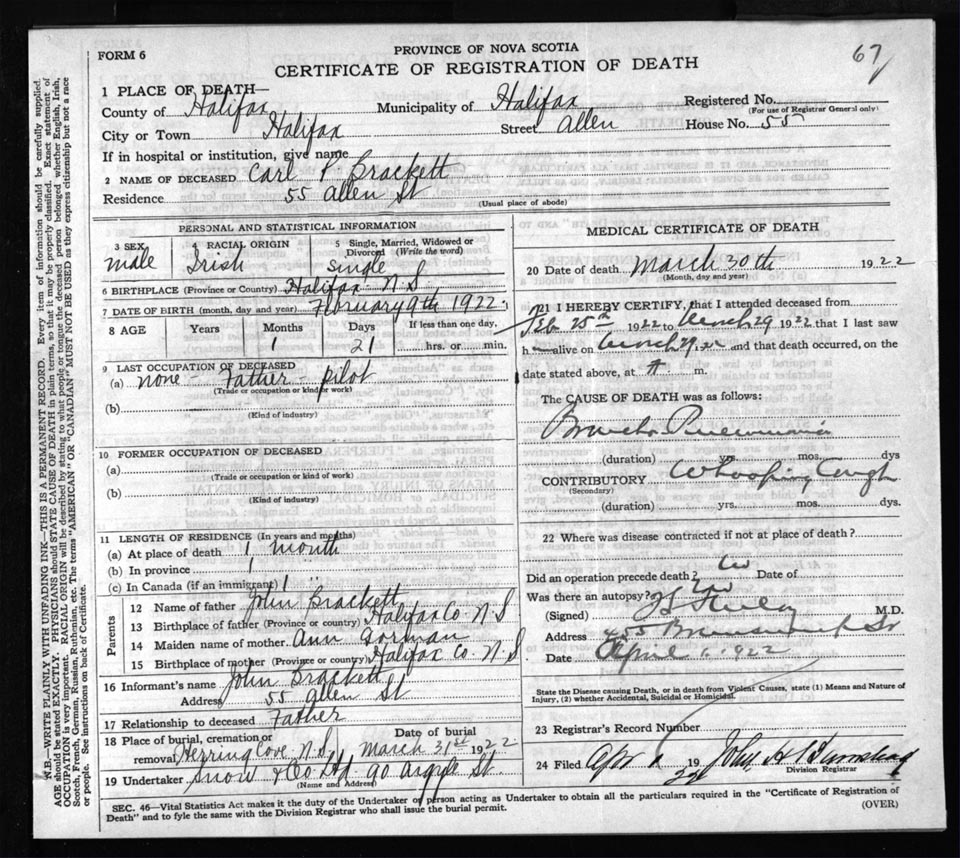 FORM 6
PROVINCE OF NOVA SCOTIA
CERTIFICATE OF REGISTRATION OF DEATH
67
1 PLACE OF DEATH—
County of Halifax Municipality of Halifax Registered No.
(For use of Registrar General only)
City or Town Halifax Street Allen House No. 55
If in hospital or institution, give name
2 NAME OF DECEASED Carl P Brackett
Residence 55 Allen St (Usual place of abode)
PERSONAL AND STATISTICAL INFORMATION
3 SEX 4 RACIAL ORIGIN 5 Single, Married, Widowed or Divorced (Write the word)
male Irish single
6 BIRTHPLACE (Province or Country) Halifax N.S
7 DATE OF BIRTH (month, day and year) February 9th 1922
8 AGE Years Months Days If less than one day,
1 21 hrs. or min.
9 LAST OCCUPATION OF DECEASED
(a) none Father pilot
(Trade or occupation or kind of work)
(b)
(Kind of industry)
10 FORMER OCCUPATION OF DECEASED
(a)
(Trade or occupation or kind of work)
(b)
(Kind of industry)
11 LENGTH OF RESIDENCE (In years and months)
(a) At place of death 1 month
(b) In province 1
(c) In Canada (if an immigrant) 1
Parents
12 Name of father John Brackett
13 Birthplace of father (Province or country) Halifax Co. N.S
14 Maiden name of mother Ann Gorman
15 Birthplace of mother (Province or country) Halifax Co. N.S
16 Informant's name John Brackett
Address 55 Allen St
17 Relationship to deceased Father
18 Place of burial, cremation or removal Herring Cove N.S Date of burial March 31st 1922
19 Undertaker Snow & Co Ltd 90 Argyle St.
(Name and Address)
MEDICAL CERTIFICATE OF DEATH
20 Date of death March 30th 1922
(Month, day and year)
21 I HEREBY CERTIFY, that I attended deceased from
Feb 25th 1922 to March 29 1922 that I last saw
h alive on March 29, 22 and that death occurred, on the
date stated above, at m.
The CAUSE OF DEATH was as follows:
Broncho Pneumonia
(duration) yrs. mos. days
CONTRIBUTORY Whooping Cough
(Secondary)
(duration) yrs. mos. dys.
22 Where was disease contracted if not at place of death?
Did an operation precede death? Date of
Was there an autopsy?
(Signed) M.D.
Address 455 Brunswick St
Date April 1922
State the Disease causing Death, or in death from Violent Causes, state (1) Means and Nature of
Injury, (2) whether Accidental, Suicidal or Homicidal.
23 Registrar's Record Number
24 Filed Apr 19 22 John H
Division Registrar
SEC. 46—Vital Statistics Act makes it the duty of the Undertaker or person acting as Undertaker to obtain all the particulars required in the "Certificate of Registration of
Death" and to fyle the same with the Division Registrar who shall issue the burial permit.
(OVER)
N.B.—WRITE PLAINLY WITH UNFADING INK—THIS IS A PERMANENT RECORD. Every item of information should be carefully supplied.
AGE should be stated EXACTLY. PHYSICIANS should STATE CAUSE OF DEATH in plain terms, so that it may be properly classified. Exact statement of
OCCUPATION is very important. RACIAL ORIGIN will be described by stating to what people or tongue the deceased person belonged whether English, Irish,
Scotch, French, German, Russian, Ruthenian, etc. The terms "AMERICAN" OR "CANADIAN" MUST NOT BE USED as they express citizenship but not a race
or people. See instructions on back of Certificate.